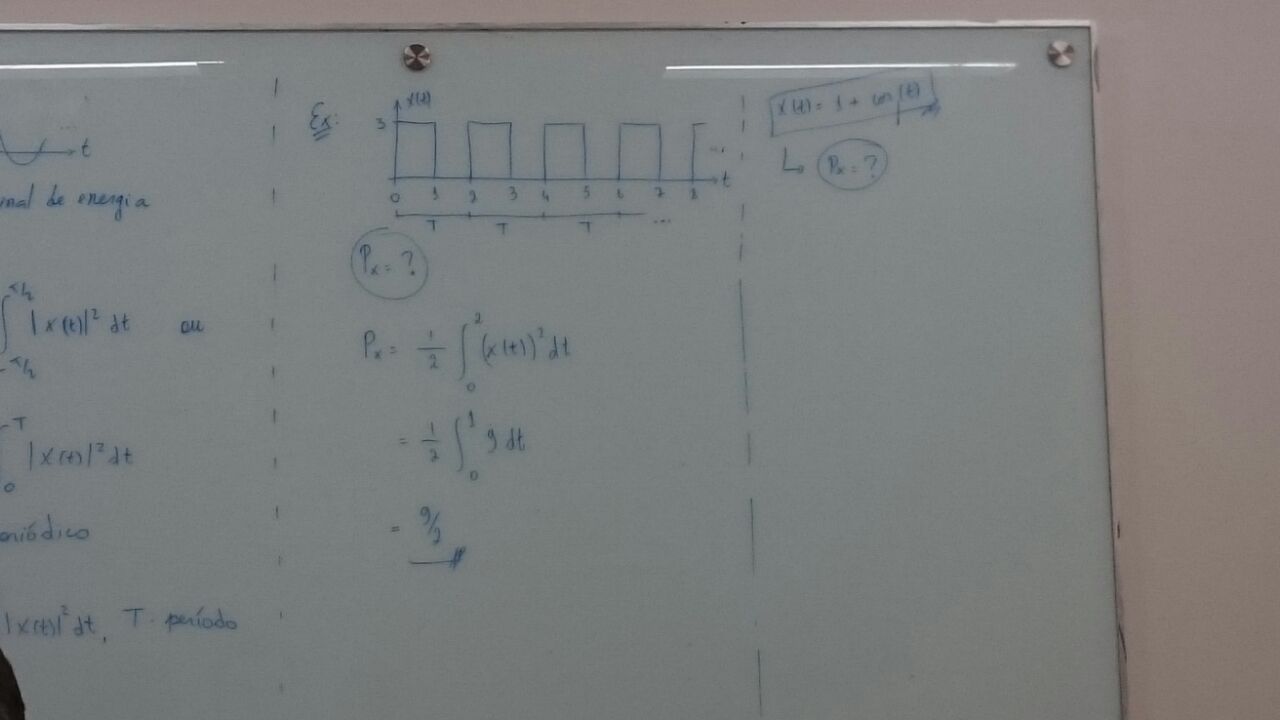 ... t
inal de energia
∫ |x(t)|² dt ou
T/2
-T/2
∫ |x(t)|² dt
T
0
eriódico
|x(t)|² dt, T · período
Ex:
x(t)
3
0 1 2 3 4 5 6 7 8 t
...
T T T ...
Px = ?
Px = 1/2 ∫₀² (x(t))² dt
= 1/2 ∫₀¹ 9 dt
= 9/2
x(t) = 1 + cos(t)
↳ Px = ?